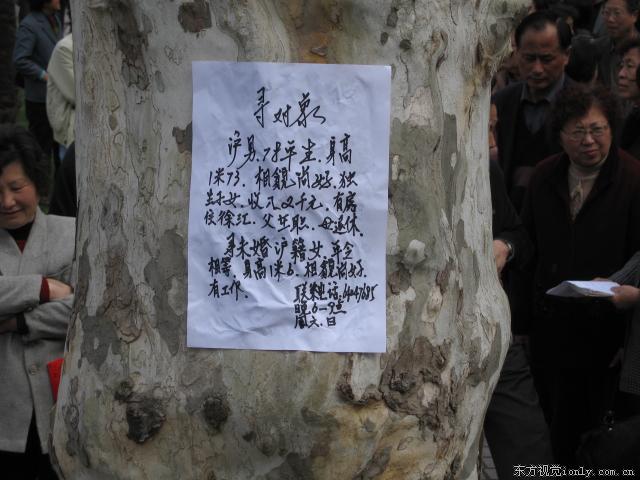 寻对象
沪男.78年生.身高
1米73.相貌尚好.独
生子女.收入2千元.有房
住徐汇.父在职.母退休.
寻未婚沪籍女.年令
相等.身高1米6.相貌尚好.
有工作. 联系电话:
晚6—9点
周六.日
东方视觉ionly.com.cn